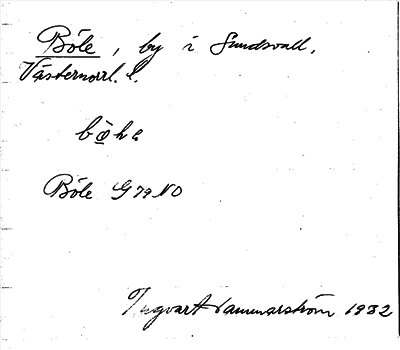 Böle, by i Sundsvall,
Västernorrl. l.
Böle G79NO
Ingvart Hammarström 1932